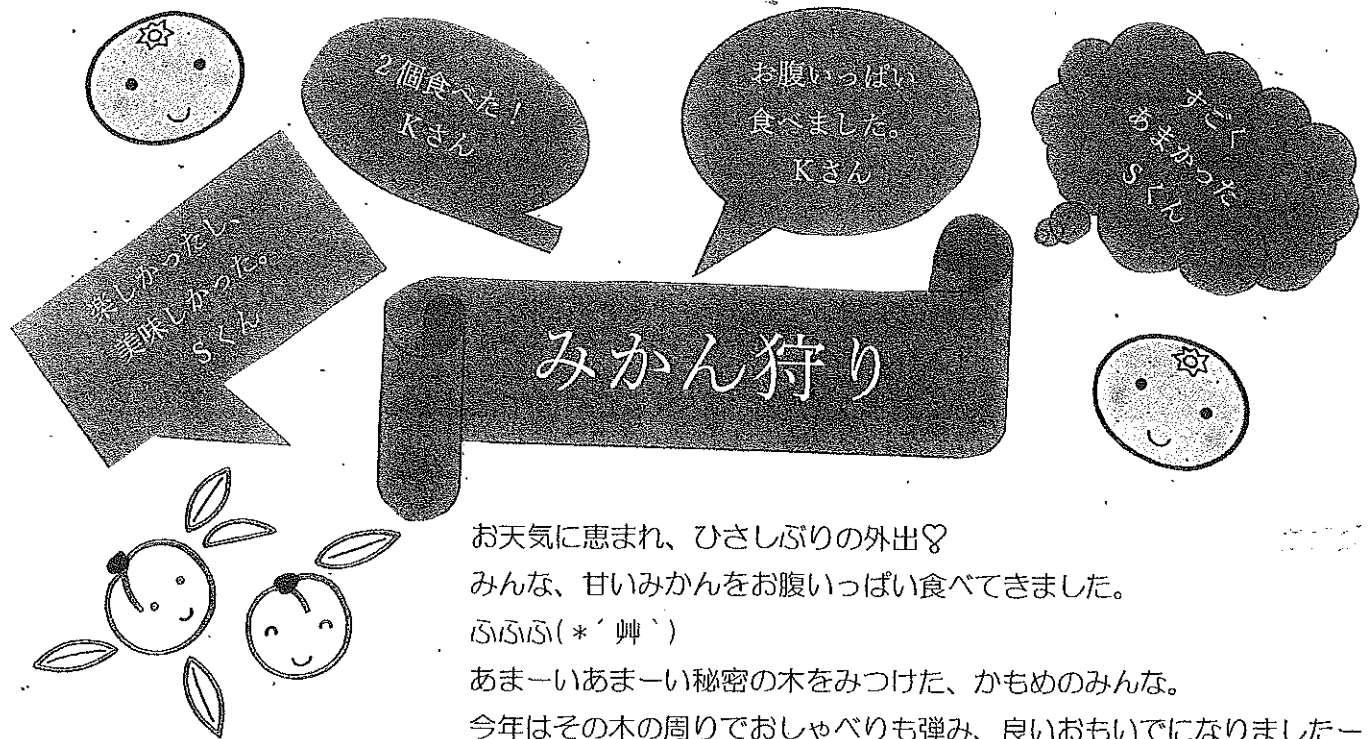 2個食べた！
Kさん
お腹いっぱい
食べました。
Kさん
すごく
あまかった
Sくん
楽しかったし、
美味しかった。
Sくん
みかん狩り
お天気に恵まれ、ひさしぶりの外出♡
みんな、甘いみかんをお腹いっぱい食べてきました。
ふふふ(*´艸｀)
あまーいあまーい秘密の木をみつけた、かもめのみんな。
今年はその木の周りでおしゃべりも弾み、良いおもいでになりましたー